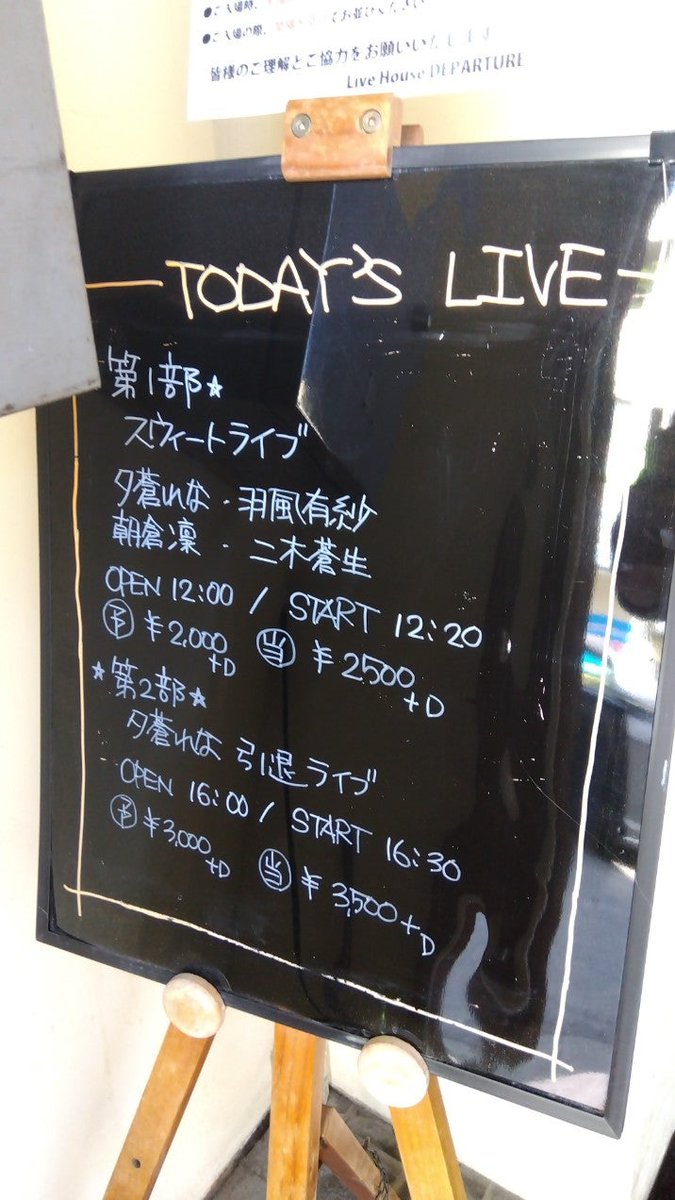 ●ご入場時、
●ご入場の際、お並びください
皆様のご理解とご協力をお願いいたします
Live House DEPARTURE
TODAY'S LIVE
第1部☆
スウィートライブ
夕蒼れな・羽風有紗
朝倉凛・二木蒼生
OPEN 12:00 / START 12:20
予 ¥2,000+D 当 ¥2500+D
★第2部★
夕蒼れな 引退ライブ
OPEN 16:00 / START 16:30
予 ¥3,000+D 当 ¥3,500+D